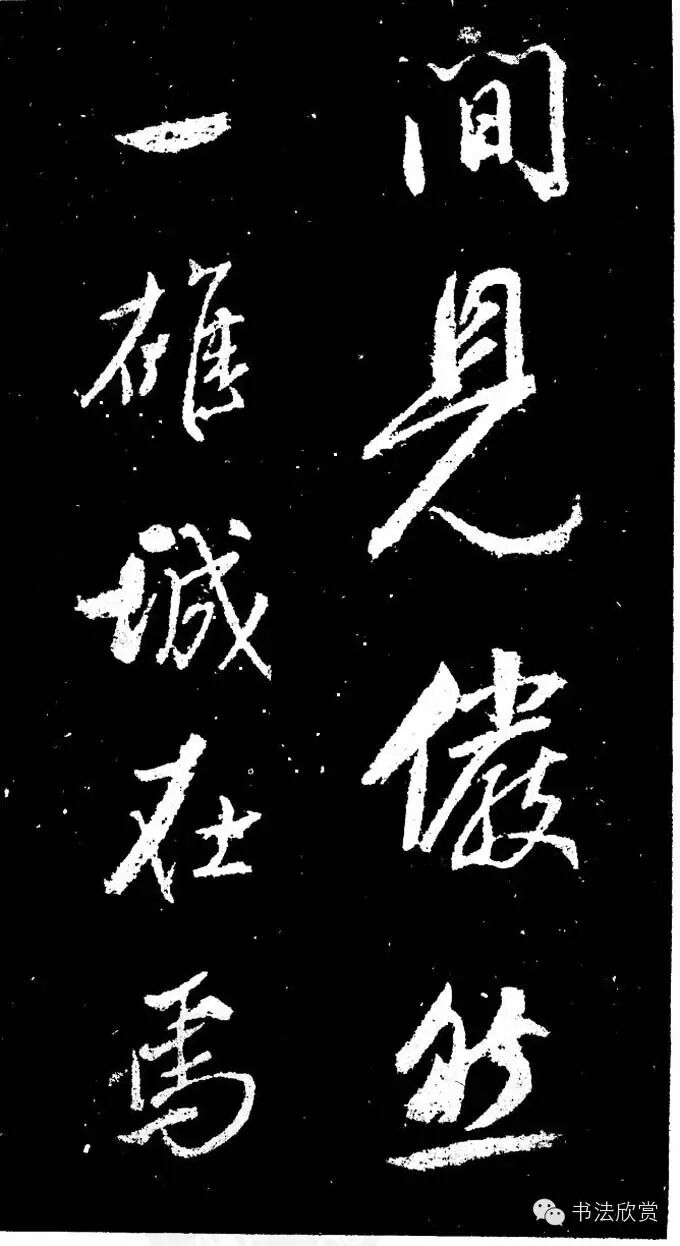 間見儼然
一雄城在焉
书法欣赏